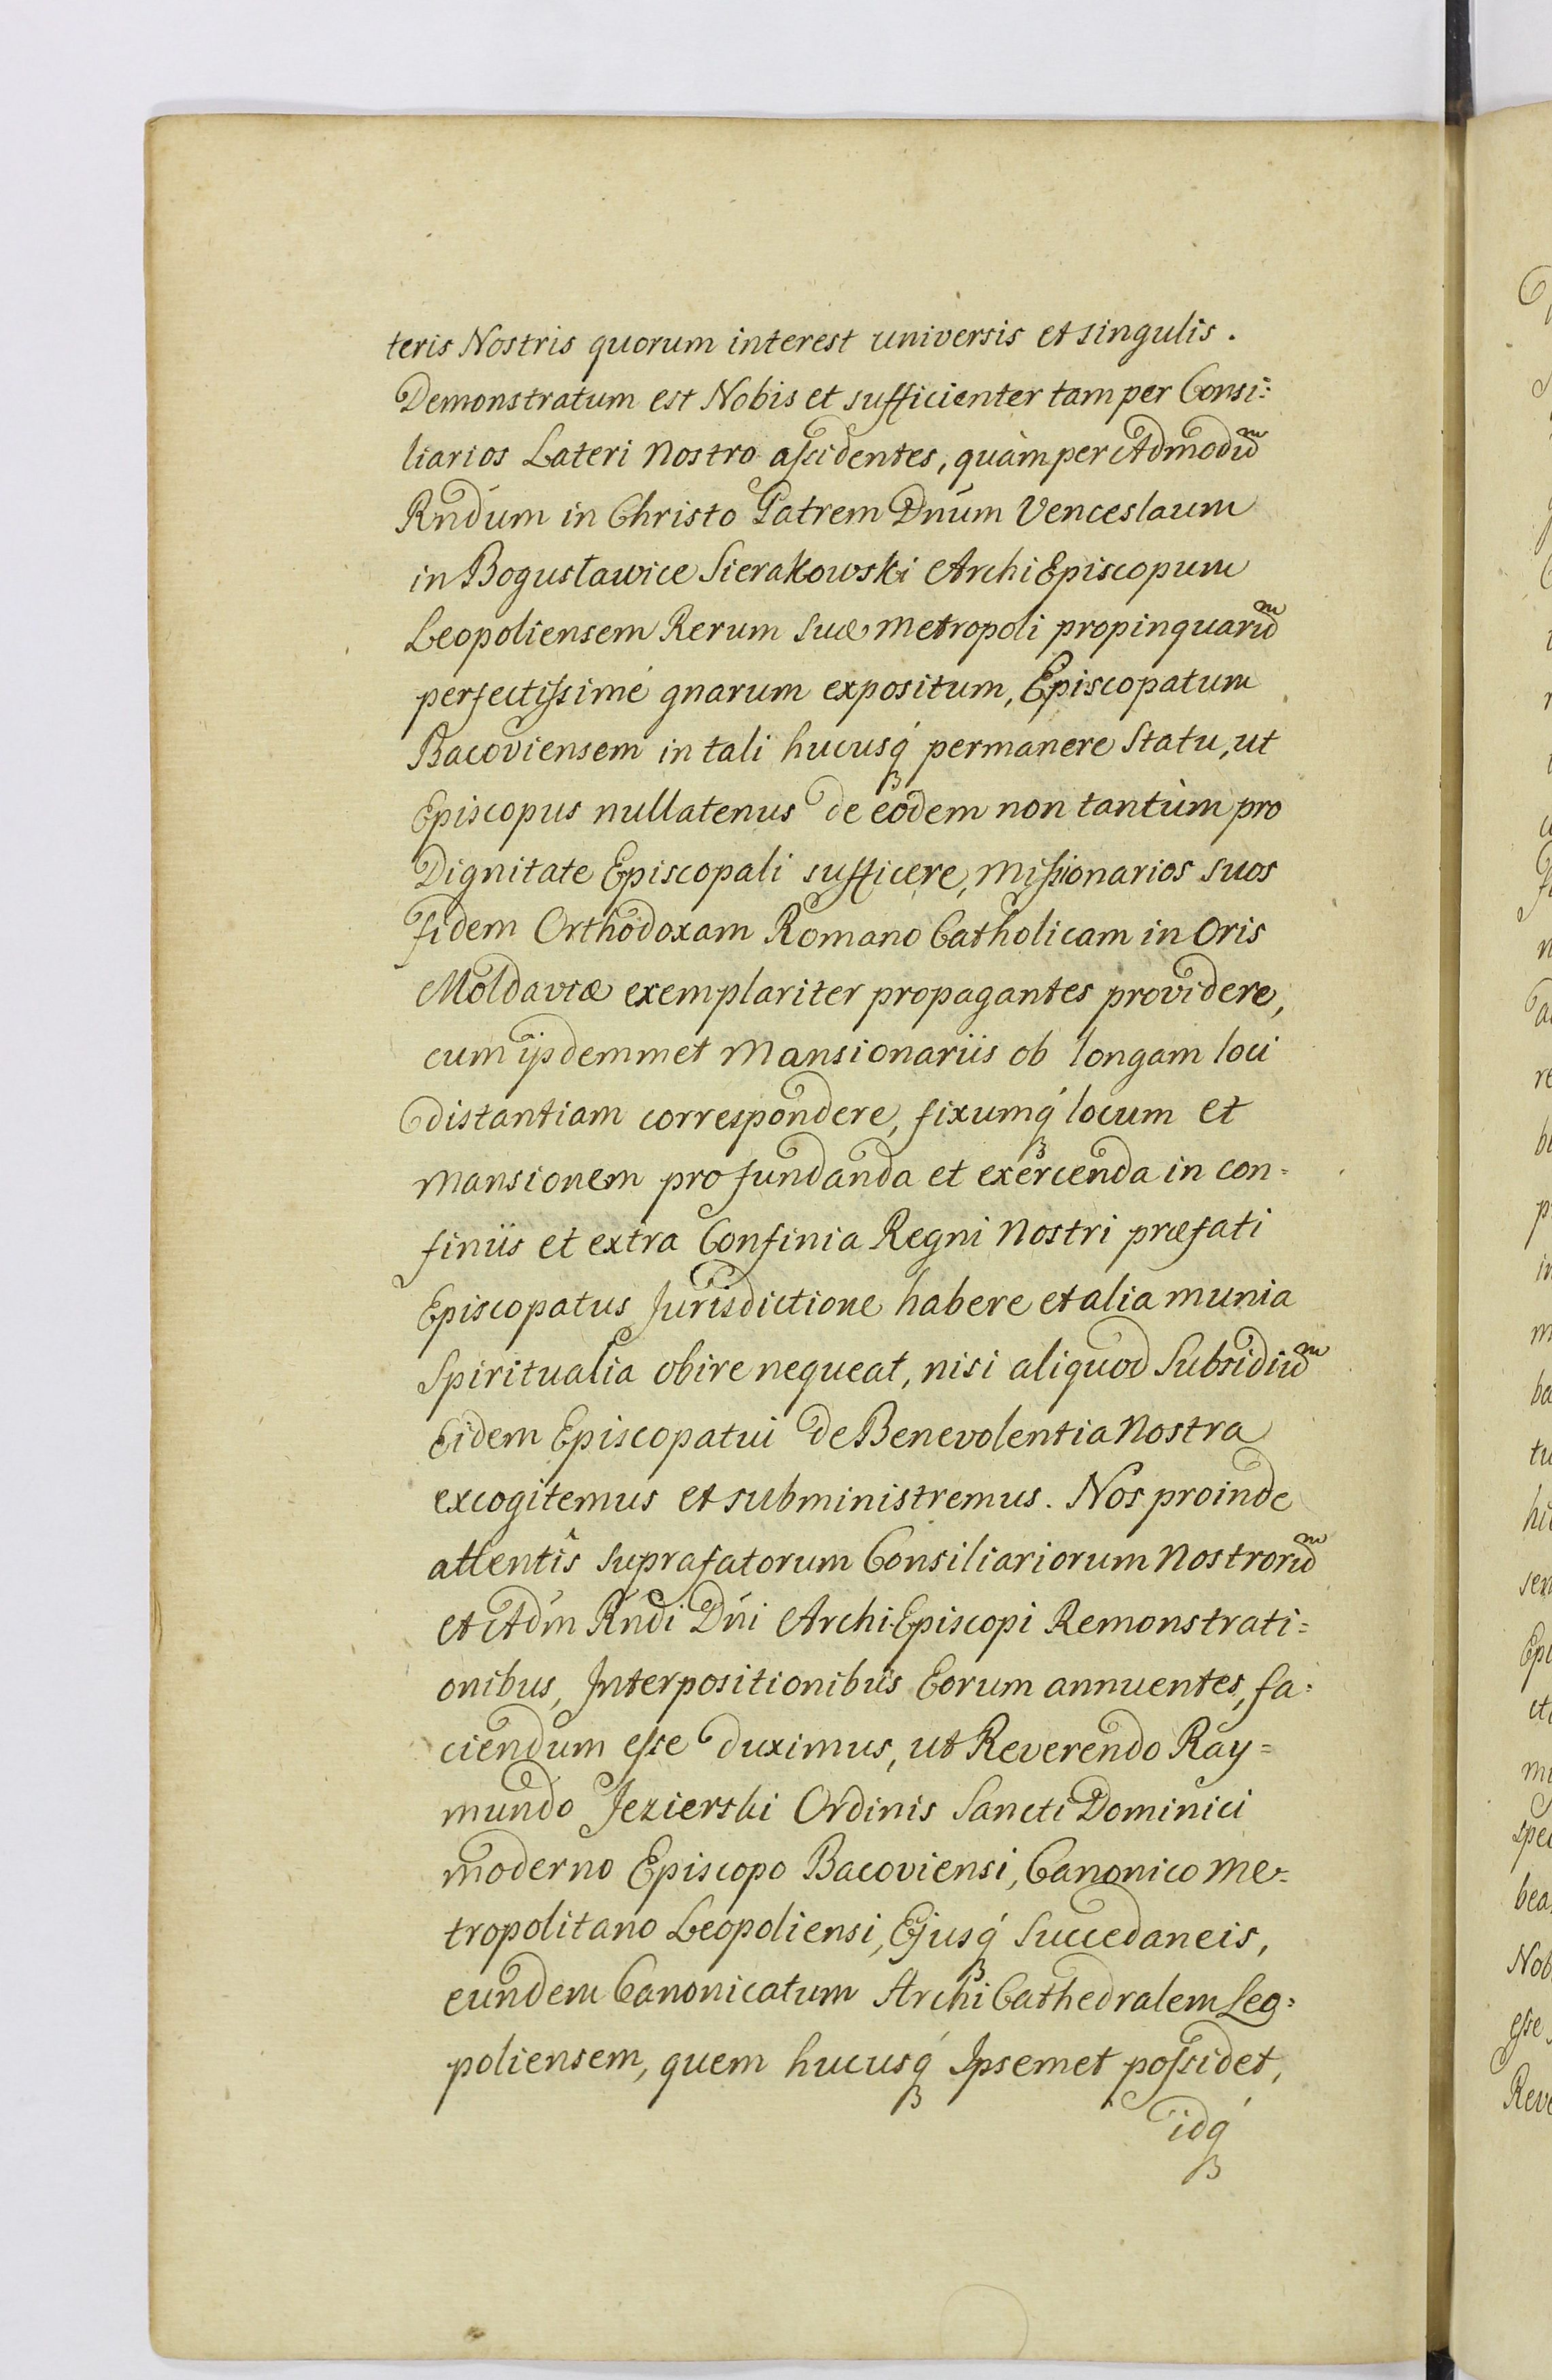 teris Nostris quorum interest universis et singulis.
Demonstratum est Nobis et sufficienter tam per Consi=
liarios Lateri Nostro aſsidentes, quàm per Admodũ
Rndum in Christo Patrem Dnum Venceslaum
in Bogusławice Sierakowski ArchiEpiscopum
Leopoliensem Rerum suæ Metropoli propinquarũ
perfectiſsimé gnarum expositum, Episcopatum
Bacoviensem in tali hucusq́ permanere Statu, ut
Episcopus nullatenus de eodem non tantùm pro
Dignitate Episcopali sufficere, Miſsionarios suos
fidem Orthodoxam Romano Catholicam in Oris
Moldaviæ exemplariter propagantes providere,
cum ijsdemmet Mansionariis ob longam loci
distantiam correspondere, fixumq́ locum et
Mansionem pro fundanda et exercenda in con=
finiis et extra Confinia Regni Nostri præfati
Episcopatus Jurisdictione habere et alia munia
Spiritualia obire nequeat, nisi aliquod Subsidiũ
Eidem Episcopatui de Benevolentia Nostra
excogitemus et subministremus. Nos proinde
attentîs suprafatorum Consiliariorum Nostrorũ
et Adm Rndi Dni ArchiEpiscopi Remonstrati=
onibus, Interpositionibus Eorum annuentes, fa=
ciendum eſse duximus, ut Reverendo Ray=
mundo Jezierski Ordinis Sancti Dominici
moderno Episcopo Bacoviensi, Canonico Me=
tropolitano Leopoliensi, Ejusq́ Succedaneis,
eundem Canonicatum ArchiCathedralem Leo=
poliensem, quem hucusq́ Ipsemet poſsidet,
idq́